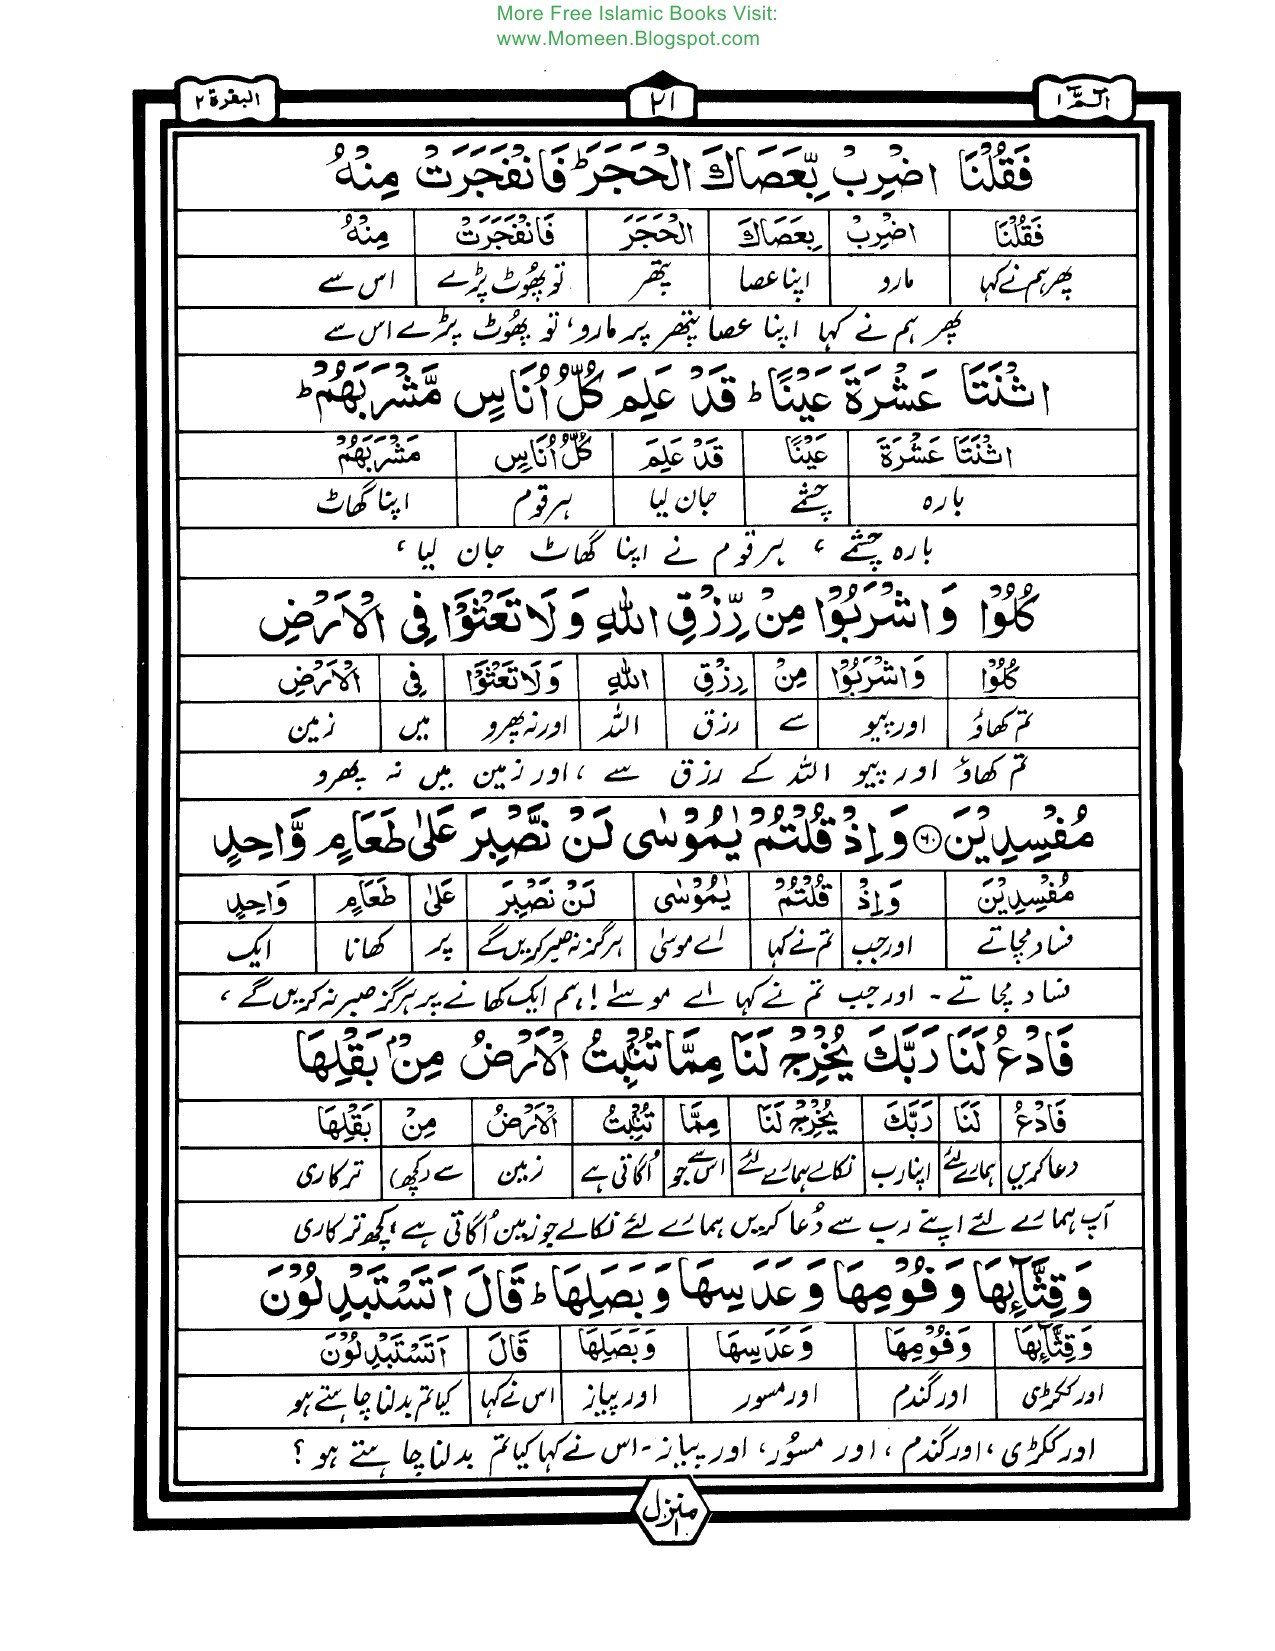 More Free Islamic Books Visit:
www.Momeen.Blogspot.com
الٓمّٓ ۱ ۲۱ البقرة ۲
فَقُلْنَا اضْرِبْ بِّعَصَاكَ الْحَجَرَ ؕ فَانْفَجَرَتْ مِنْهُ
فَقُلْنَا اضْرِبْ بِعَصَاكَ الْحَجَرَ فَانْفَجَرَتْ مِنْهُ
پھر ہم نے کہا مارو اپنا عصا پتھر تو پھُوٹ پڑے اس سے
پھر ہم نے کہا اپنا عصا پتھر پر مارو، تو پھُوٹ پڑے اس سے
اثْنَتَا عَشْرَةَ عَيْنًا ؕ قَدْ عَلِمَ كُلُّ اُنَاسٍ مَّشْرَبَهُمْ ؕ
اثْنَتَا عَشْرَةَ عَيْنًا قَدْ عَلِمَ كُلُّ اُنَاسٍ مَشْرَبَهُمْ
بارہ چشمے جان لیا ہر قوم اپنا گھاٹ
بارہ چشمے ، ہر قوم نے اپنا گھاٹ جان لیا ،
كُلُوْا وَاشْرَبُوْا مِنْ رِّزْقِ اللّٰهِ وَلَا تَعْثَوْا فِى الْاَرْضِ
كُلُوْا وَاشْرَبُوْا مِنْ رِزْقِ اللّٰهِ وَلَا تَعْثَوْا فِى الْاَرْضِ
تم کھاؤ اور پیو سے رزق اللہ اور نہ پھرو میں زمین
تم کھاؤ اور پیو اللہ کے رزق سے ، اور زمین میں نہ پھرو
مُفْسِدِيْنَ ۶۰ وَاِذْ قُلْتُمْ يٰمُوْسٰى لَنْ نَّصْبِرَ عَلٰى طَعَامٍ وَّاحِدٍ
مُفْسِدِيْنَ وَاِذْ قُلْتُمْ يٰمُوْسٰى لَنْ نَصْبِرَ عَلٰى طَعَامٍ وَاحِدٍ
فساد مچاتے اور جب تم نے کہا اے موسیٰ ہرگز نہ صبر کریں گے پر کھانا ایک
فساد مچاتے ۔ اور جب تم نے کہا اے موسےٰ ! ہم ایک کھانے پر ہرگز صبر نہ کریں گے ،
فَادْعُ لَنَا رَبَّكَ يُخْرِجْ لَنَا مِمَّا تُنْۢبِتُ الْاَرْضُ مِنْۢ بَقْلِهَا
فَادْعُ لَنَا رَبَّكَ يُخْرِجْ لَنَا مِمَّا تُنْۢبِتُ الْاَرْضُ مِنْ بَقْلِهَا
دعا کریں ہمارے لئے اپنا رب نکالے ہمارے لئے اس سے جو اُگاتی ہے زمین سے (کچھ) ترکاری
آپ ہمارے لئے اپنے رب سے دُعا کریں ہمارے لئے نکالے جو زمین اُگاتی ہے ، کچھ ترکاری
وَقِثَّآئِهَا وَفُوْمِهَا وَعَدَسِهَا وَبَصَلِهَا ؕ قَالَ اَتَسْتَبْدِلُوْنَ
وَقِثَّآئِهَا وَفُوْمِهَا وَعَدَسِهَا وَبَصَلِهَا قَالَ اَتَسْتَبْدِلُوْنَ
اور ککڑی اور گندم اور مسور اور پیاز اس نے کہا کیا تم بدلنا چاہتے ہو
اور ککڑی ، اور گندم ، اور مسُور ، اور پیاز ۔ اس نے کہا کیا تم بدلنا چاہتے ہو ؟
منزل ۱